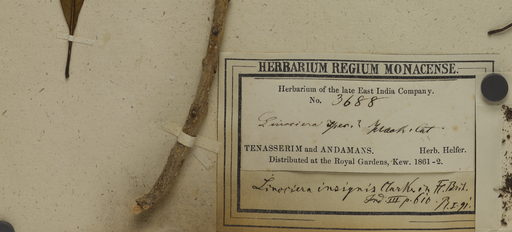 HERBARIUM REGIUM MONACENSE.
Herbarium of the late East India Company.
No. 3688
Linociera
TENASSERIM and ANDAMANS. Herb. Helfer.
Distributed at the Royal Gardens, Kew. 1861-2.
Linociera insignis Clarke in Fl. Brit.
Ind. III p. 610.